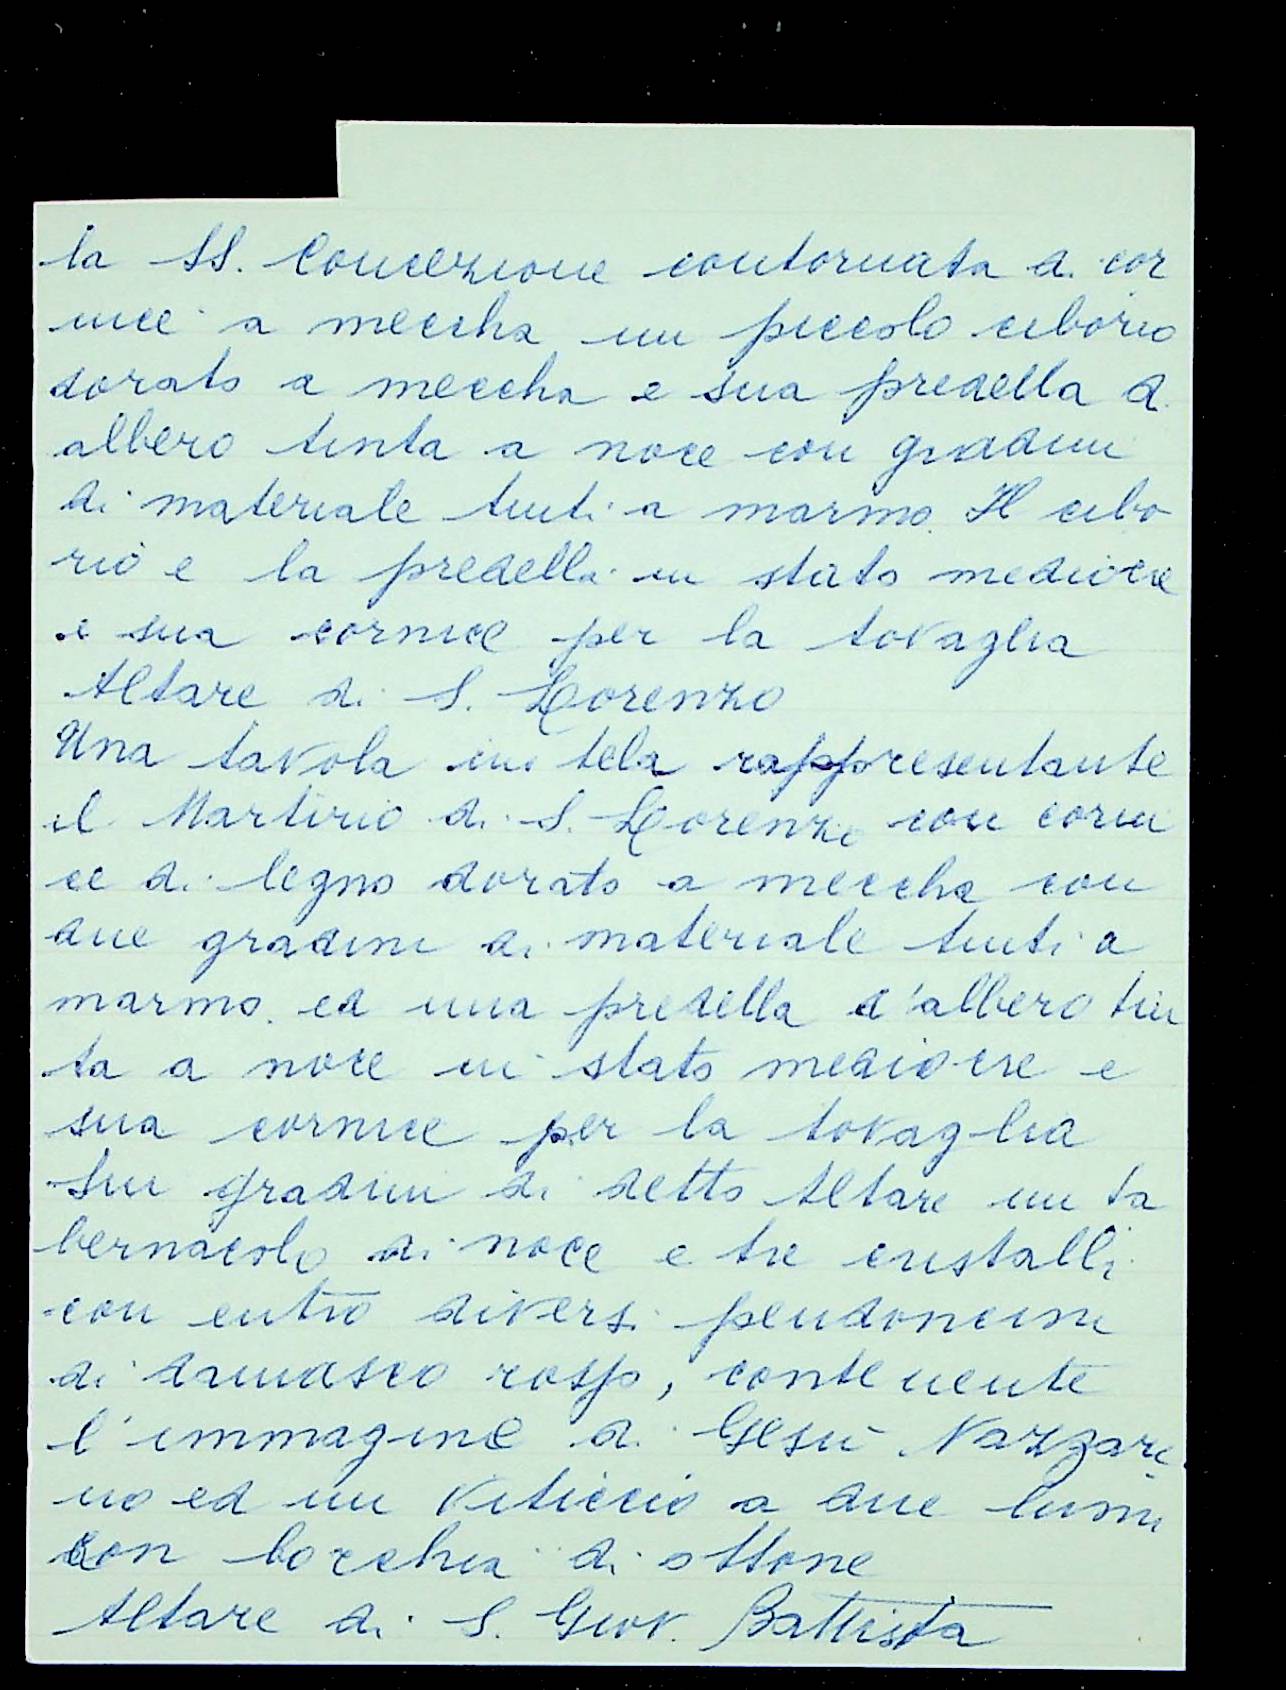 la SS. Concezione contornata di cor
nice a meccha un piccolo ciborio
dorato a meccha e sua predella di
albero tinta a noce con gradini
di materiale tinti a marmo. Il cibo
rio e la predella in stato mediocre
e sua cornice per la tovaglia
Altare di S. Lorenzo
Una tavola in tela rappresentante
il Martirio di S. Lorenzo con corni
ce di legno dorato a meccha con
due gradini di materiale tinti a
marmo. ed una predella d'albero tin
ta a noce in stato mediocre e
sua cornice per la tovaglia
Sui gradini di detto Altare un ta
bernacolo di noce e tre cristalli
con entro diversi pendoncini
di damasco rosso, contenente
l'immagine di Gesù Nazzare
no ed un viticcio a due lumi
con bocchia di ottone
Altare di S. Giov. Battista